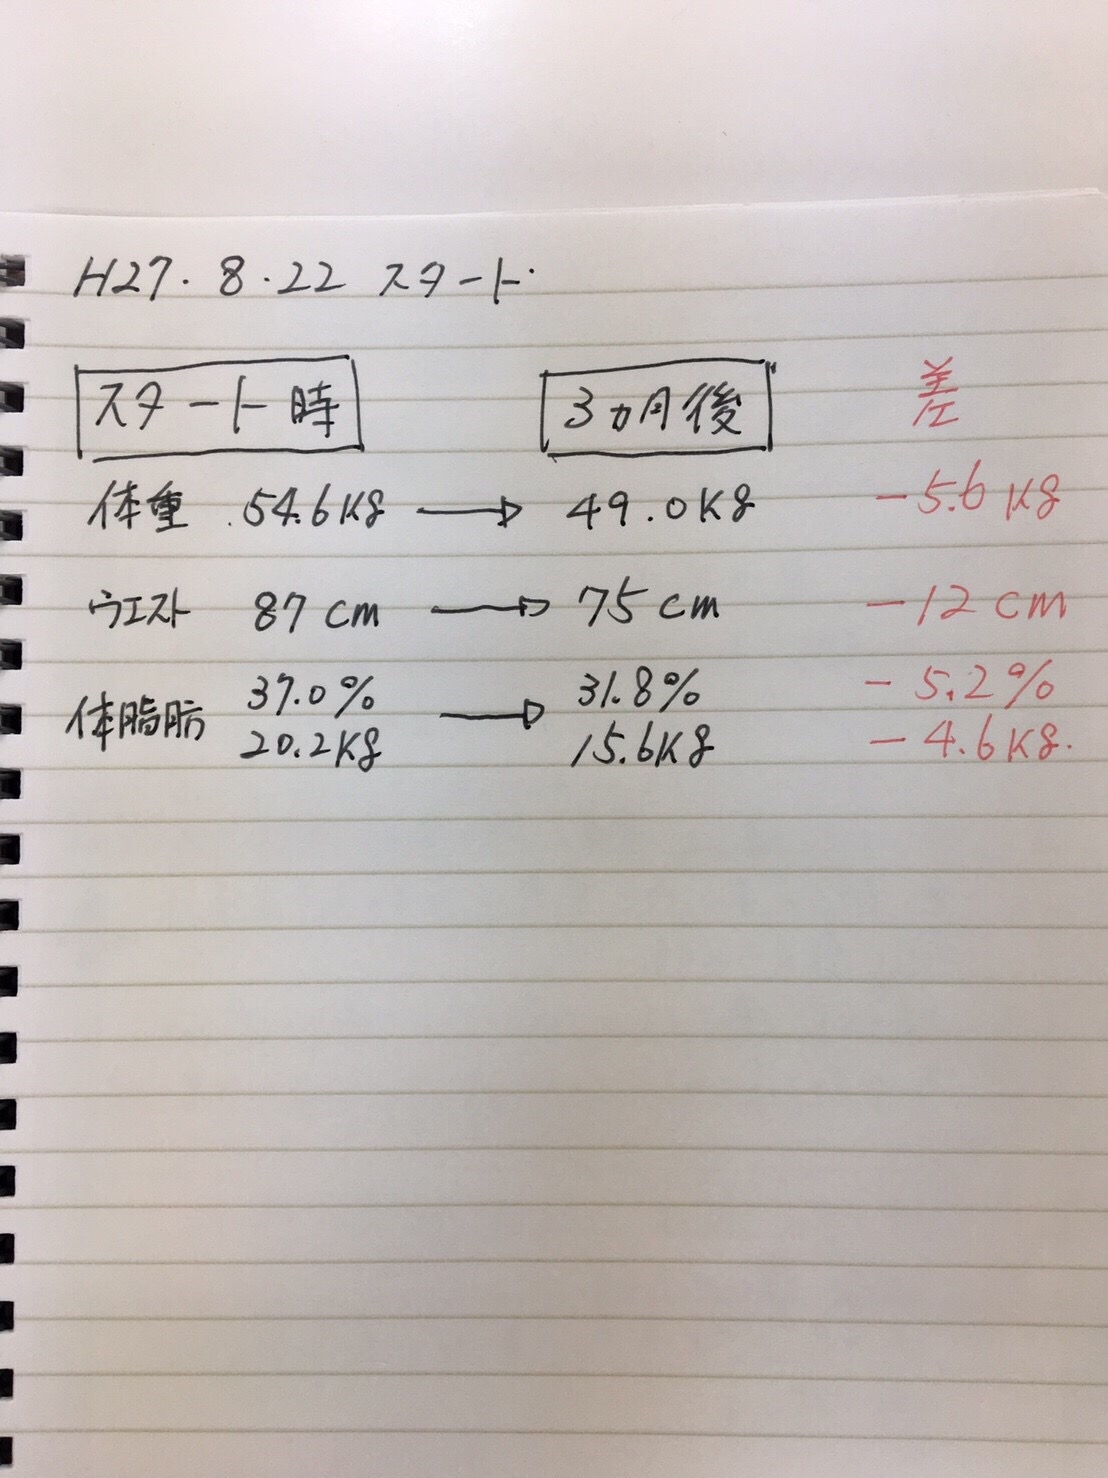 H27.8.22 スタート
スタート時 3カ月後 差
体重 54.6Kg → 49.0Kg -5.6Kg
ウエスト 87cm → 75cm -12cm
37.0% 31.8% -5.2%
体脂肪 →
20.2Kg 15.6Kg -4.6Kg.